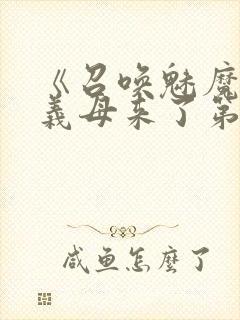 《召唤魅魔
義母来了第
咸鱼怎麼了